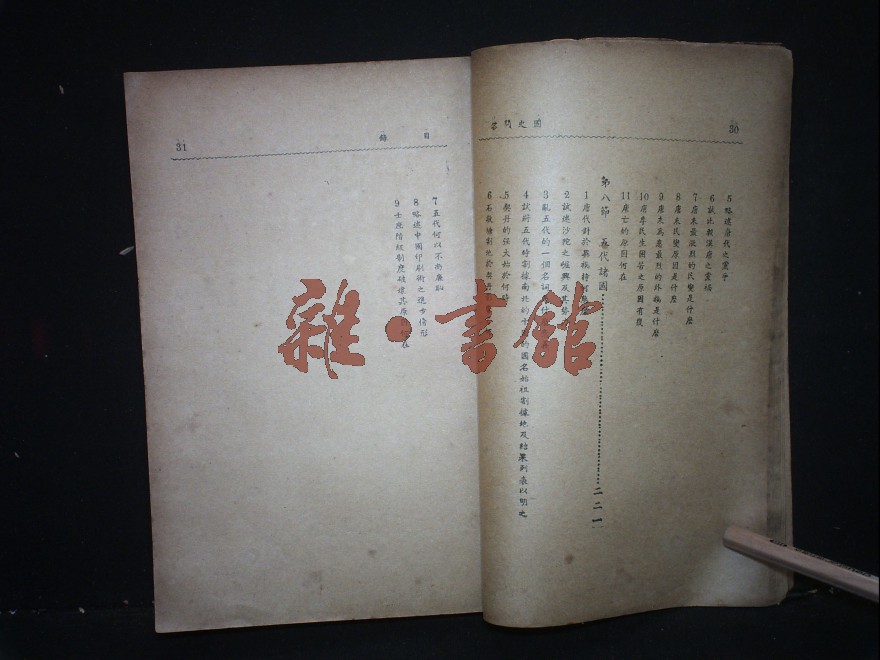 國史問答
30
5 略述唐代之黨爭
6 試比較漢唐之黨禍
7 唐末最激烈的民變是什麼
8 唐末民變原因是什麼
9 唐久為患最烈的外禍是什麼
10 唐季民生困苦之原因有幾
11 唐亡的原因何在
第八節 五代諸國 二二一
1 唐代對於異族
2 試述沙陀之崛興及其
3 亂五代的一個名詞
4 試將五代時割據南北的十 國名始祖割據地及結果列表以明之
5 契丹的強大始於何時
6 石敬瑭割地於
目錄
31
7 五代何以不尚廉恥
8 略述中國印刷術之進步情形
9 士庶階級制度破壞其原 在
雜·書館